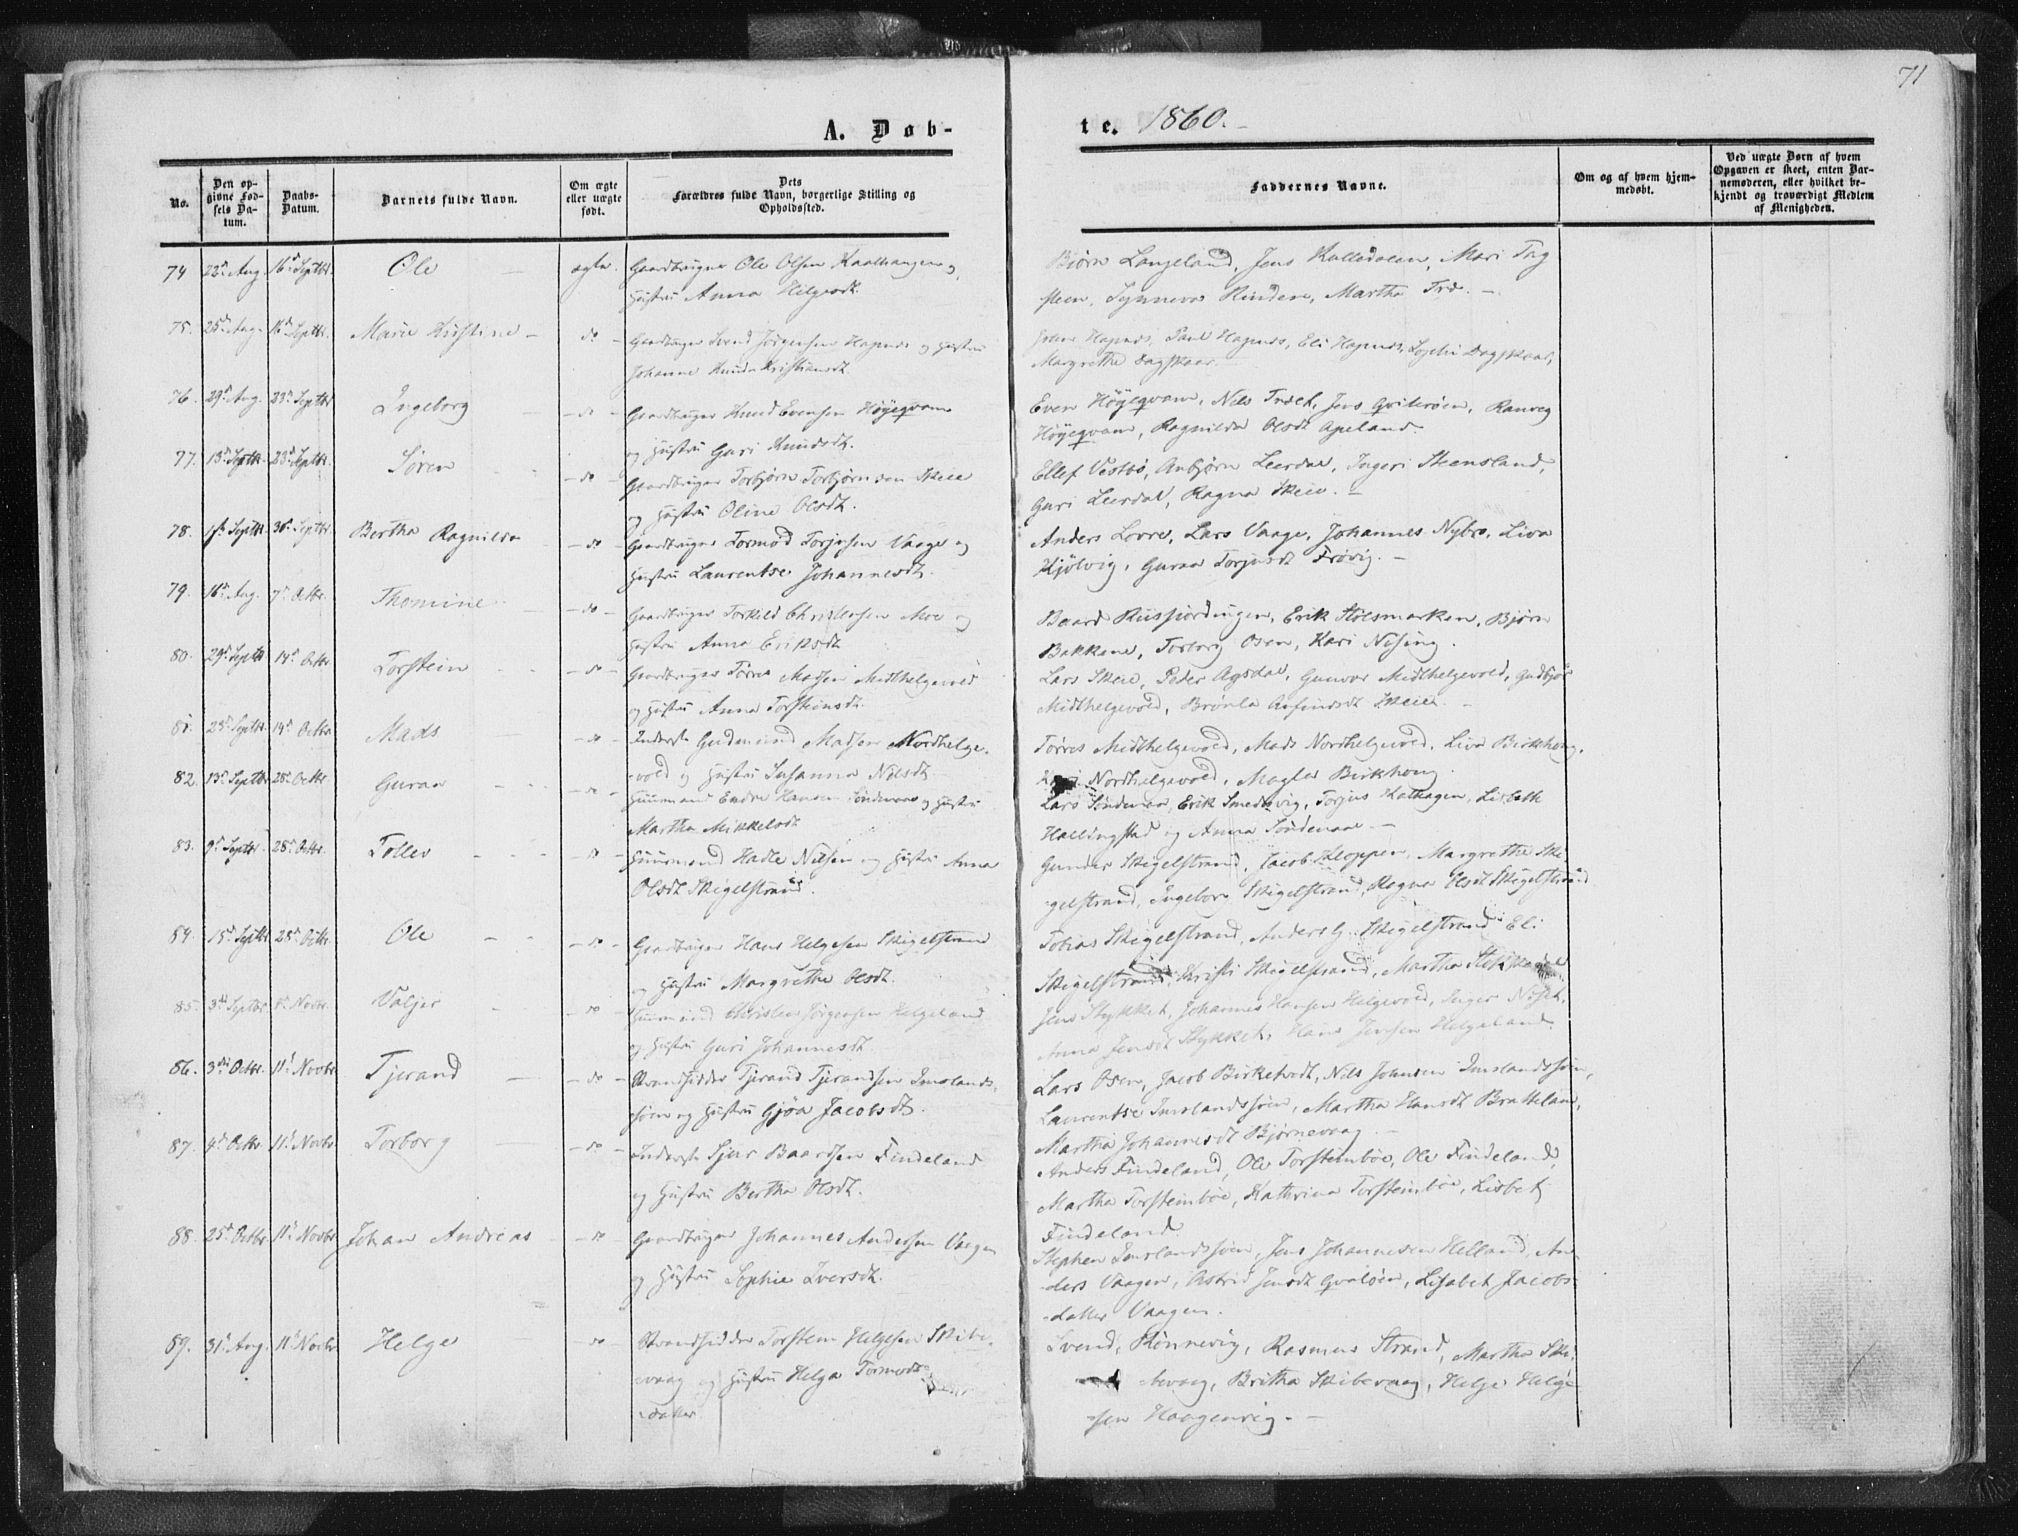 71
A. Døb-
te. 1860.
No.
Den op-
givne Fød-
sels Da-
tum.
Daabs-
Datum.
Barnets fulde Navn.
Om ægte
eller uægte
født.
Dets
Forældres fulde Navn, borgerlige Stilling og
Opholdssted.
Faddernes Navne.
Om og af hvem hjem-
medøbt.
Ved uægte Børn af hvem
Opgaven er skeet, enten Bar-
nemoderen, eller hvilket be-
kjendt og troværdigt Medlem
af Menigheden.
74 22d Aug. 16d Septbr. Ole ægte. Gaardbruger Ole Olsen
Hustru Anna Helgesdt.
Bjørn Langeland, Jens Kalledalen, Mari
Synneva Rinden, Martha
75. 25d Aug. 16d Septbr. Marie Kristine do Gaardbruger Svend Jørgensen Hapnes og Hustru
Johanne Knudine Kristiansdt.
Hapnes, Paul Hapnes, Eli Hapnes, Sophie Dagskaar,
Margrethe Dagskaar
76. 29d Aug. 23d Septbr Ingeborg do Gaardbruger Knud Evensen Høyeqvam
og Hustru Guri Knudsdt.
Even Høyeqvam, Nils Træet, Jens Qviteröen, Ranveg
Høyeqvam, Ragnilda Olsdt Apeland.
77. 13d Septbr. 23d Septbr. Søren do Gaardbruger Torbjørn Torbjørnsen Skeie
og Hustru Oline Olsdt.
Ellef Vestbö, Anbjørn Leerdal, Ingeri Steensland,
Guri Leerdal, Ragna Skeie.
78. Septbr 30d Septbr Bertha Ragnilda do Gaardbruger Tormod Torjusen Vaage og
Hustru Laurentse Johannesdt.
Anders Lovre, Lars Vaage, Johannes Nybro, Liva
Kjölvig, Guraa Torjusdt Frøvig.
79. 16d Aug. 7d Octbr. Thomine do Gaardbruger Torkild Christensen Moe og
Hustru Anna Eriksdt
Baard Riisfiordingen, Erik Stölsmarken, Bjørn
Bakkene, Torborg Osen, Kari Nesing.
80. 29d Septbr 14d Octbr Torstein do Gaardbruger Törres Madsen Midthelgevold
og Hustru Anna Torsteinsdt.
Lars Skeie, Peder Agsdal, Gunvor Midthelgevold, Gudbjør
Midthelgevold, Brönla Arfindsdt Skeie.
81. 23d Septbr. 14d Octbr Mads do Inderst Gudmund Madsen Nordhelge-
vold og Hustru Susanna Nilsdt
Törres Midthelgevold, Mads Nordhelgevold, Liva Birkhoug,
Nordhelgevold, Magler Birkhoug.
82. 13d Septbr 28d Octbr Guraa do Huusmand Endre Hansen Söndenaa og Hustru
Martha Mikkelsdt
Lars Söndenaa, Erik Smedsvig, Torjus Hatlagen, Lisbeth
Hallingstad og Anna Söndenaa
83. 9d Septbr. 28d Octbr. Tollev do Huusmand Hadle Nilsen og Hustru Anna
Olsdt Skigelstrand.
Gunder Skigelstrand, Jacob Kloppen, Margrethe Ski-
gelstrand, Ingeborg Skigelstrand, Ragna Olsdt Skigelstrand
84. 15d Septbr 28d Octbr. Ole do Gaardbruger Hans Helgesen Skigelstrand
og Hustru Margrethe Olsdt.
Tobias Skigelstrand, Anders G. Skigelstrand Eli
Skigelstrand, Kristi Skigelstrand, Martha
85. 3d Septbr Novbr. Valjer do Huusmand Christen Jørgensen Helgeland
og Hustru Guri Johannesdt.
Jens Stykket, Johannes Hansen Helgevold, Inger
Anna Jensdt Stykket, Hans Jensen Helgeland.
86. 3die Octbr. 11d Novbr Tjerand do Strandsidder Tjerand Tjerandsen Imslands-
sjöen og Hustru Gjöa Jacobsdt.
Lars Osen, Jacob Birketvedt, Nils Johnsen Imslandssjöen,
Laurentse Imslandssjöen, Martha Hansdt Bratteland,
Martha Johannesdt Bjørnevaag.
87. 4d Octbr. 11d Novbr Torborg do Inderst Sjur Baardsen Findeland
og Hustru Bertha Olsdt.
Anders Findeland, Ole Torsteinböe, Ole Findeland,
Martha Torsteinböe, Kathrina Torsteinböe, Lisbet
Findeland.
88. 25d Octbr 11d Novbr Johan Andreas do Gaardbruger Johannes Andersen Vaagen
og Hustru Sophie Iversdt.
Stephen Imslandssjöen, Jens Johannesen Helland, An-
ders Vaagen, Astrid Jensdt Qvalöen, Lisabet Jacobs-
datter Vaagen.
89. 31d Aug. 11d Novbr Helge do Strandsidder Torstein Helgesen Skibe-
vaag og Hustru Helga Tormods-
datter
Svend Rönnevig, Rasmus Strand, Martha Ski-
bevaag, Britha Skibevaag, Helge Helge-
sen Haagenvig.